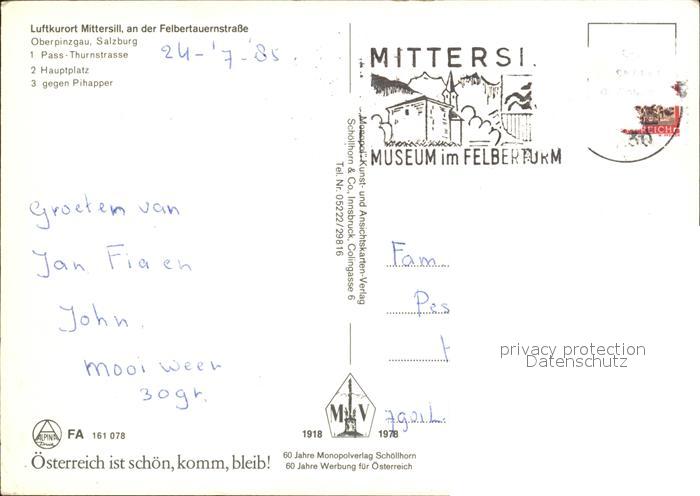 Luftkurort Mittersill, an der Felbertauernstraße
Oberpinzgau, Salzburg
1 Pass-Thurnstrasse
2 Hauptplatz
3 gegen Pihapper
24-'7-'85.
MITTERSI
MUSEUM im FELBERTURM
REICH
„Monopol“-Kunst- und Ansichtskarten-Verlag
Schöllhorn & Co., Innsbruck, Colingasse 6
Tel. Nr. 05222/29816
Groeten van
Jan Fia en
John.
Mooi weer
30gr.
Fam.
Pes
privacy protection
Datenschutz
ALPINA
FA 161 078
Österreich ist schön, komm, bleib!
M V
1918 1978
60 Jahre Monopolverlag Schöllhorn
60 Jahre Werbung für Österreich